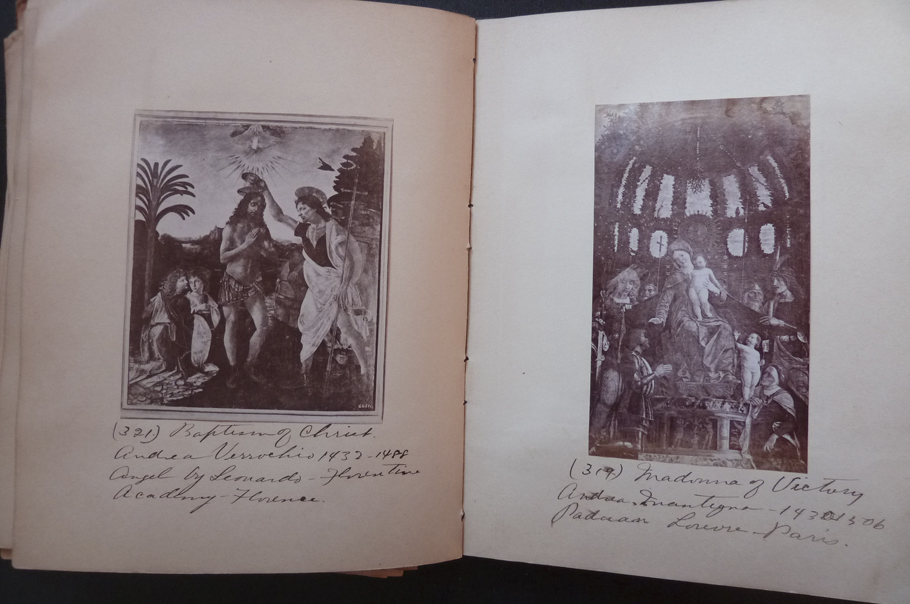 (321) Baptism of Christ.
Andrea Verrochio 1432-1488
Angel by Leonardo - Florentine
Academy - Florence.
Madonna of Victory
Mantegna - 1506
Paduan Louvre - Paris.